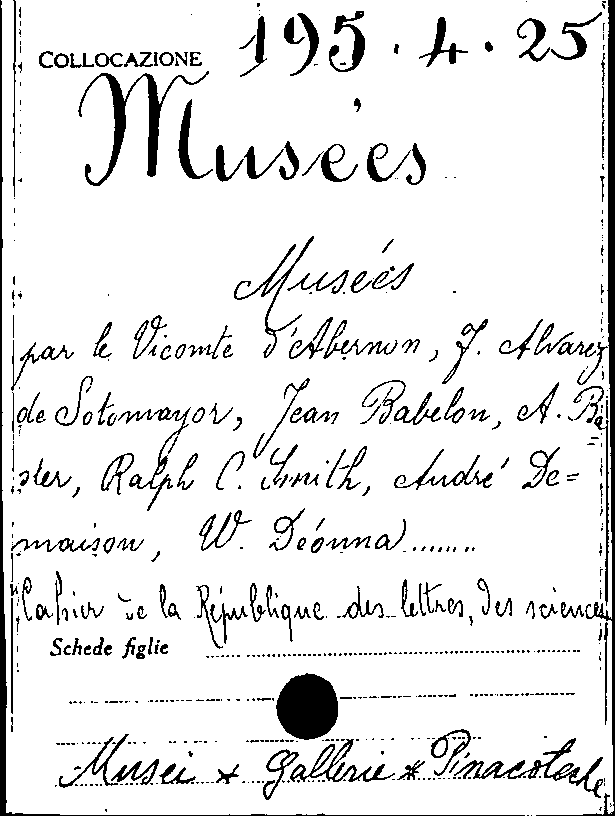 COLLOCAZIONE 195.4.25
Musées
Musées
par le Vicomte d'Abernon, J. Alvarez
de Sotomayor, Jean Babelon, A. Ba=
sler, Ralph C. Smith, André De=
maison, W. Déonna.......
Cahier de la République des lettres, des sciences
Schede figlie
Musei * Gallerie * Pinacoteche